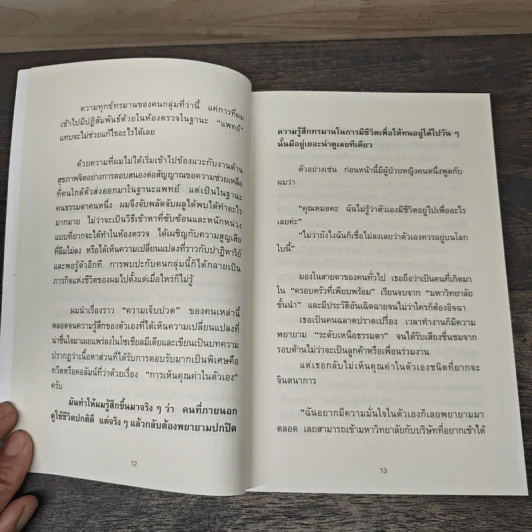 ความทุกข์ทรมานของคนกลุ่มที่ว่านี้ แค่การที่ผม
เข้าไปมีปฏิสัมพันธ์ด้วยในห้องตรวจในฐานะ “แพทย์”
แทบจะไม่ช่วยแก้ไขอะไรได้เลย
ด้วยความที่ผมไม่ได้เริ่มเข้าไปข้องแวะกับงานด้าน
สุขภาพจิตอย่างการตอบสนองต่อสัญญาณขอความช่วยเหลือ
ที่คนใกล้ตัวส่งออกมาในฐานะแพทย์ แต่เป็นในฐานะ
คนธรรมดาคนหนึ่ง ผมจึงจับพลัดจับผลูได้พบได้ทำอะไร
มากมาย ไม่ว่าจะเป็นวิธีเข้าหาที่ซับซ้อนและหนักหน่วง
แบบที่ยากจะได้ทำในห้องตรวจ ได้เผชิญกับความสูญเสีย
ที่ลืมไม่ลง หรือได้เห็นความเปลี่ยนแปลงที่ราวกับปาฏิหาริย์
และพอรู้ตัวอีกที การพบปะกับคนกลุ่มนี้ก็ได้กลายเป็น
ภารกิจแห่งชีวิตของผมไปตั้งแต่เมื่อไหร่ก็ไม่รู้
ผมนำเรื่องราว “ความเจ็บปวด” ของคนเหล่านี้
ตลอดจนความรู้สึกของตัวเองที่ได้เห็นความเปลี่ยนแปลงที่
น่าชื่นใจมาเผยแพร่ลงในโซเชียลมีเดียและเขียนเป็นบทความ
ปรากฏว่าเนื้อหาส่วนที่ได้รับการตอบรับมากเป็นพิเศษคือ
ทวีตหรือคอลัมน์ที่ว่าด้วยเรื่อง “การเห็นคุณค่าในตัวเอง”
ครับ
มันทำให้ผมรู้สึกขึ้นมาจริง ๆ ว่า คนที่ภายนอก
ดูใช้ชีวิตปกติดี แต่จริง ๆ แล้วกลับต้องพยายามปกปิด
12
ความรู้สึกทรมานในการมีชีวิตเพื่อให้ทนอยู่ได้ไปวัน ๆ
นั้นมีอยู่เยอะน่าดูเลยทีเดียว
ตัวอย่างเช่น ก่อนหน้านี้มีผู้ป่วยหญิงคนหนึ่งพูดกับ
ผมว่า
“คุณหมอคะ ฉันไม่รู้ว่าตัวเองมีชีวิตอยู่ไปเพื่ออะไร
เลยค่ะ”
“ไม่ว่ายังไงฉันก็เชื่อไม่ลงเลยว่าตัวเองควรอยู่บนโลก
ใบนี้”
มองในสายตาของคนทั่วไป เธอถือว่าเป็นคนที่เกิดมา
ใน “ครอบครัวที่เพียบพร้อม” เรียนจบจาก “มหาวิทยาลัย
ชั้นนำ” และมีประวัติอันเฉิดฉายจนไม่ว่าใครก็ต้องอิจฉา
เธอเป็นคนฉลาดปราดเปรื่อง เวลาทำงานก็มีความ
พยายาม “ระดับเหนือธรรมดา” จนได้รับเสียงชื่นชมจาก
รอบด้านไม่ว่าจะเป็นลูกค้าหรือเพื่อนร่วมงาน
แต่เธอกลับไม่เห็นคุณค่าในตัวเองชนิดที่ยากจะ
จินตนาการ
“ฉันอยากมีความมั่นใจในตัวเองก็เลยพยายามมา
ตลอด เลยสามารถเข้ามหาวิทยาลัยกับบริษัทที่อยากเข้าได้
13